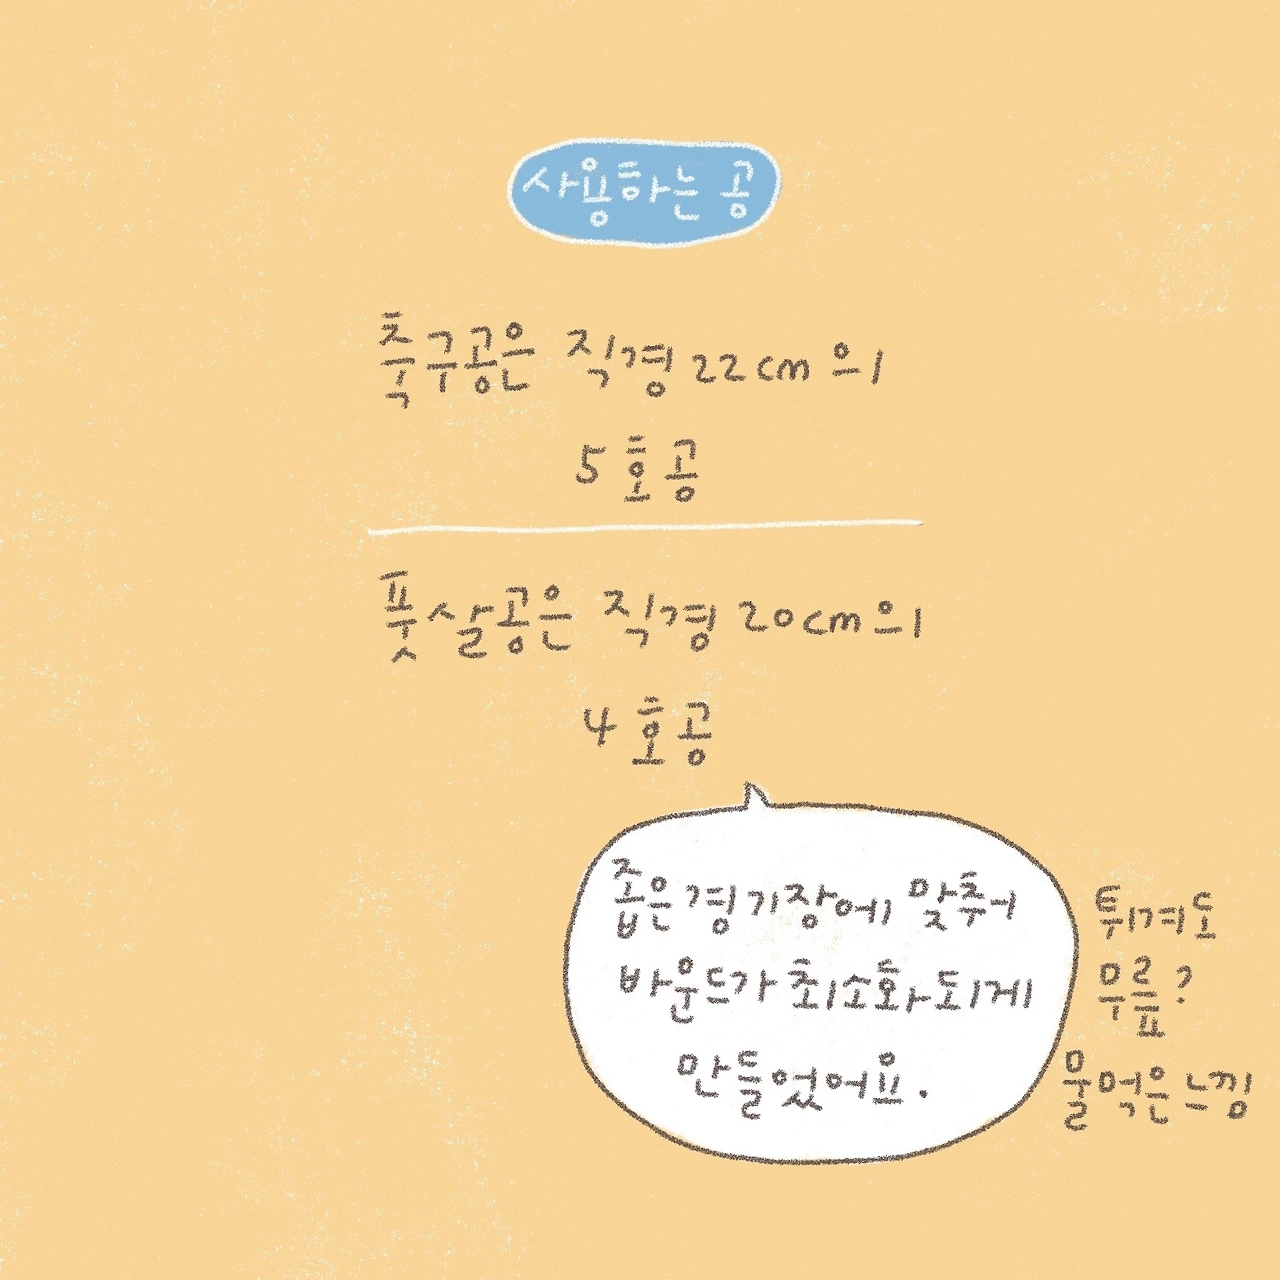 사용하는 공
축구공은 직경 22cm 의
5 호공
풋살공은 직경 20cm 의
4 호공
좁은 경기장에 맞추어
바운드가 최소화 되게
만들었어요.
튀겨도
무릎?
물먹은 느낌